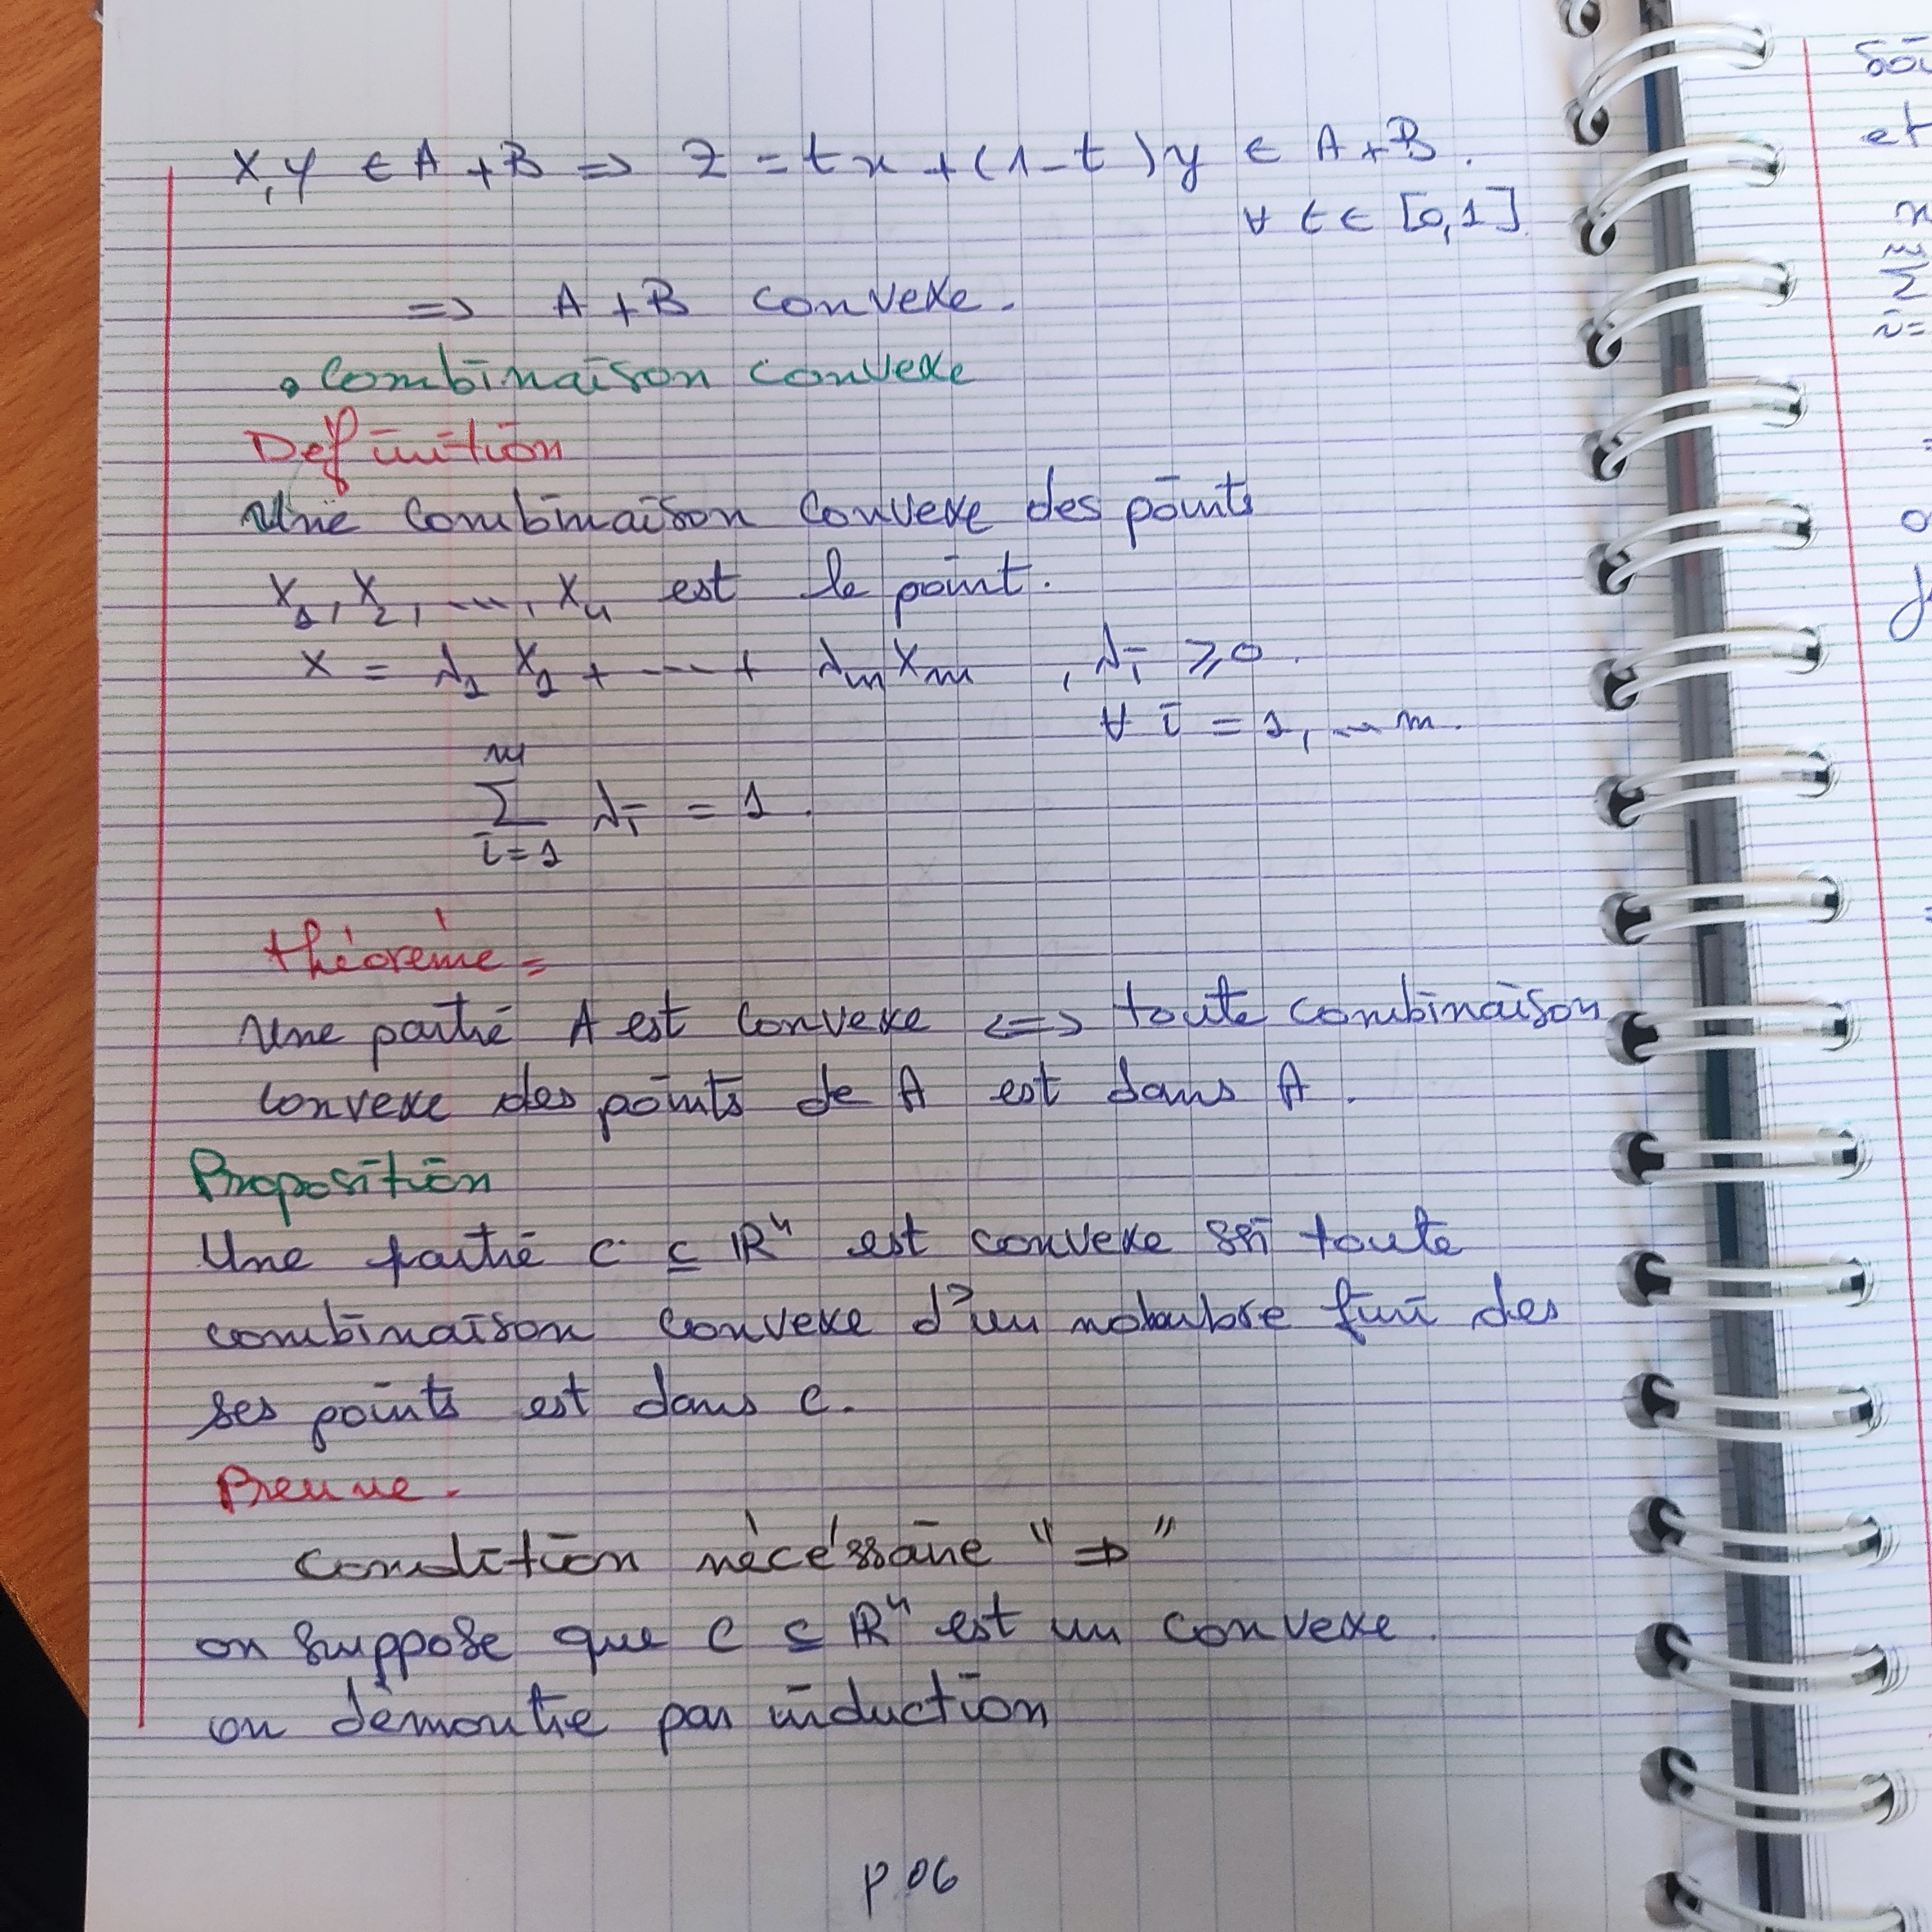 x, y ∈ A + B => z = tx + (1-t)y ∈ A+B.
∀ t ∈ [0,1]
=> A + B convexe.
• Combinaison convexe
Définition
Une combinaison convexe des points
x₁, x₂, ..., xₙ est le point.
x = λ₁ x₁ + ... + λₘ xₘ , λᵢ ≥ 0.
∀ i = 1, ... m.
m
∑ λᵢ = 1.
i=1
théorème =
Une partie A est convexe <=> toute combinaison
convexe des points de A est dans A.
Proposition
Une partie C ⊆ ℝⁿ est convexe ssi toute
combinaison convexe d'un nombre fini des
ses points est dans C.
Preuve -
Condition nécéssaire "⇒"
on suppose que C ⊆ ℝⁿ est un convexe.
on démontre par induction
p.06
soi
et
x
m
∑
i=